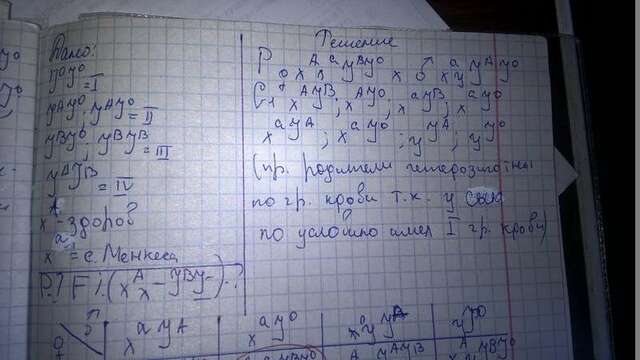 Дано:
Решение
y⁰y⁰ = I
yᴬy⁰; yᴬy⁰ = II
yᴮy⁰; yᴮyᴮ = III
yᴬyᴮ = IV
xᴬ - здоров
xᵃ = с. Менкеса
P.? F₁ (xᴬx⁻ yᴮy⁻)-?
P ♀ xᴬxᵃ yᴮy⁰ x ♂ xᵃy yᴬy⁰
G: xᴬyᴮ; xᴬy⁰; xᵃyᴮ; xᵃy⁰
xᵃyᴬ; xᵃy⁰; yyᴬ; yy⁰
(пр. родители гетерозиготны
по гр. крови т.к. у сына
по условию имел I гр. крови)
♀ ♂ xᵃyᴬ xᵃy⁰ yyᴬ yy⁰